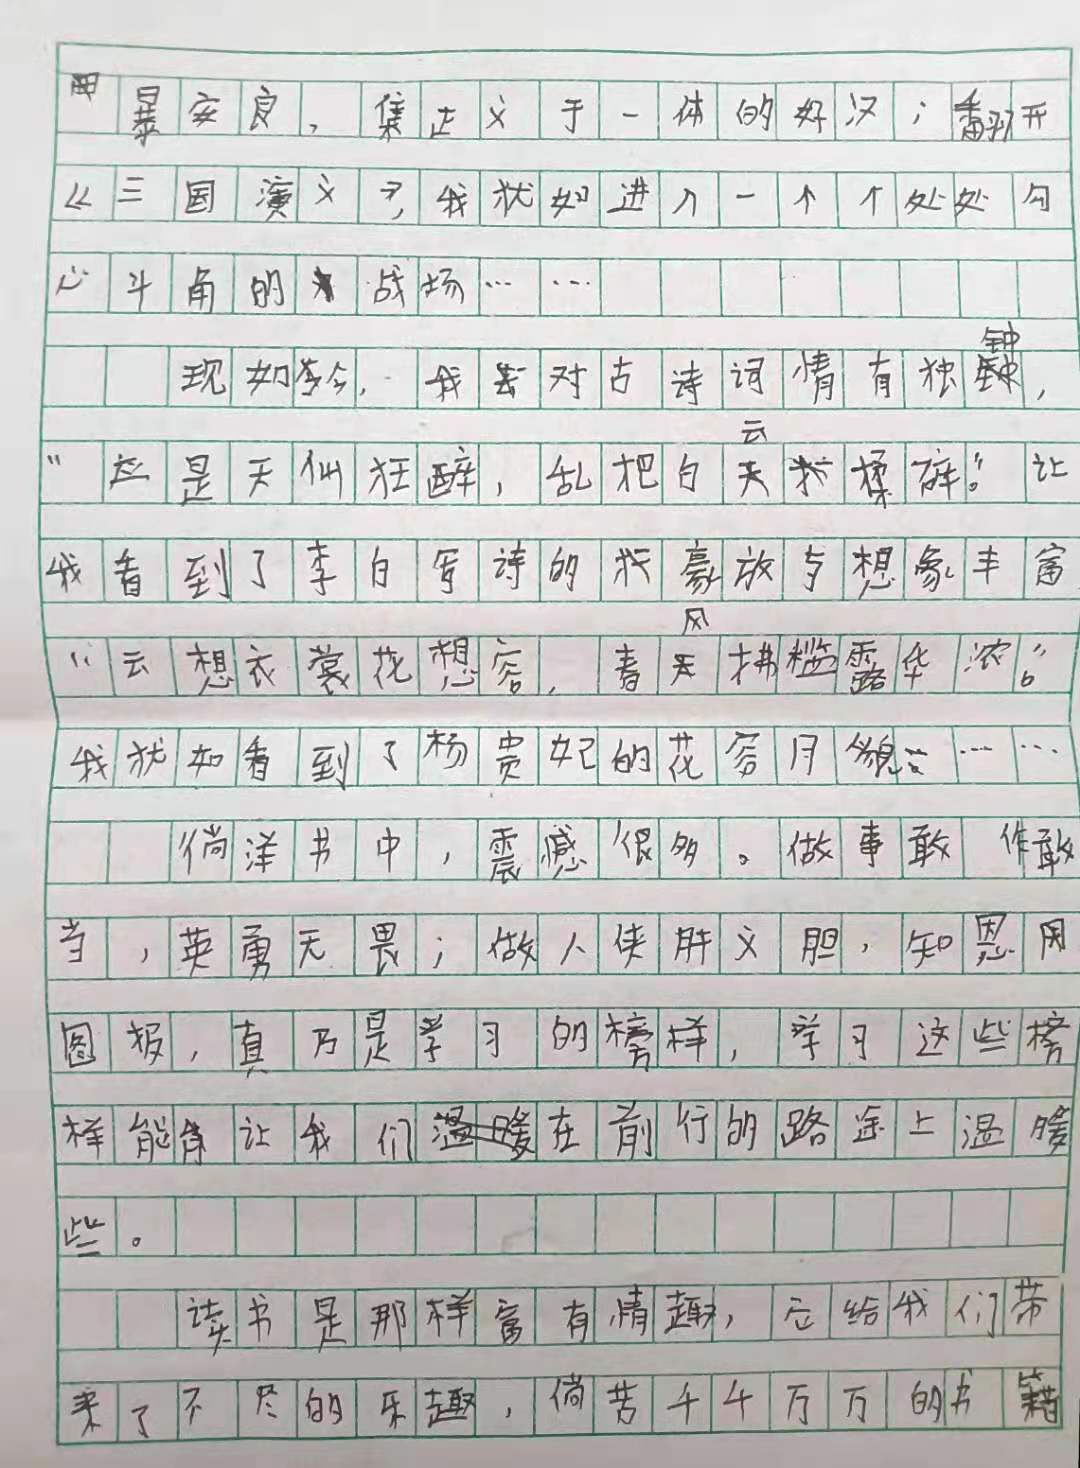 暴安良，集忠义于一体的好汉；翻开
《三国演义》，我犹如进入一个个处处勾
心斗角的战场……
现如今，我对古诗词情有独钟，
“应是天仙狂醉，乱把白云揉碎。”让
我看到了李白写诗的豪放与想象丰富
“云想衣裳花想容，春风拂槛露华浓。”
我犹如看到了杨贵妃的花容月貌……
徜洋书中，震憾很多。做事敢作敢
当，英勇无畏；做人侠肝义胆，知恩
图报，真乃是学习的榜样，学习这些榜
样能够让我们在前行的路途上温暖
些。
读书是那样富有情趣，它给我们带
来了不尽的乐趣，倘若千千万万的书籍